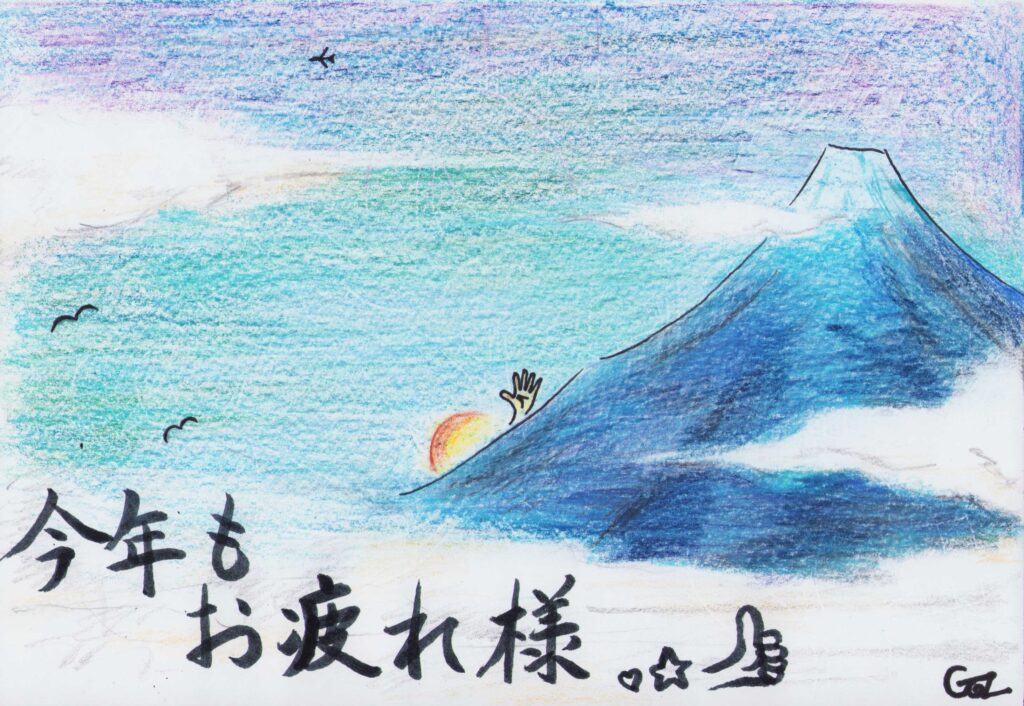 今年も
お疲れ様